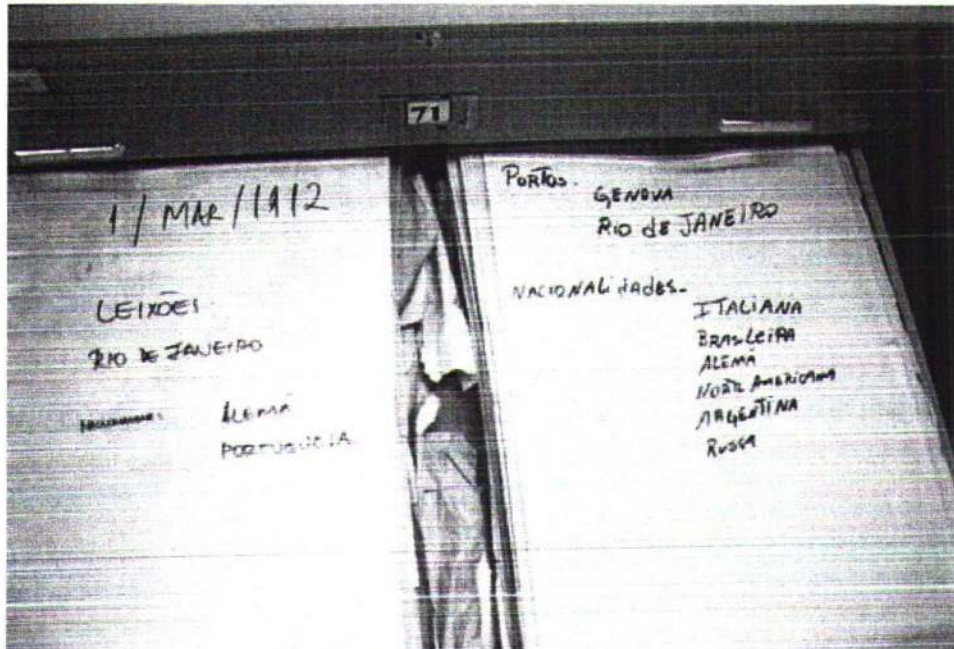 71
1/MAR/1912
LEIXÕES
RIO DE JANEIRO
ALEMÃ
PORTUGUESA
PORTOS.
GENOVA
RIO de JANEIRO
NACIONALidAdES.
ITALIANA
BRASiLEiRA
ALEMÃ
NORTE AMERICANA
ARGENTINA
RUSSA